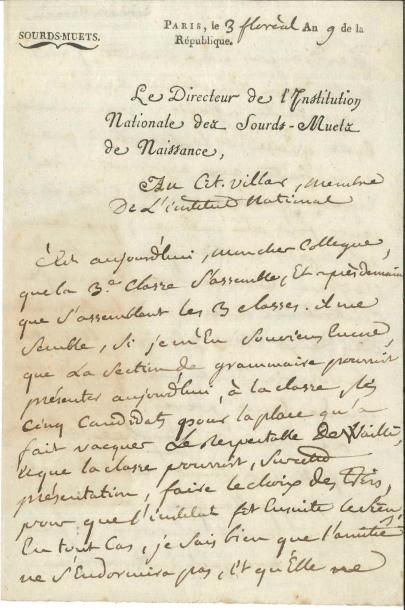 SOURDS-MUETS.
PARIS, le 3 floréal An 9 de la
République.
Le Directeur de l'Institution
Nationale des Sourds-Muets
de Naissance,
Au Cit. Villar, membre
De L'institut National
C'est aujourd'hui, mon cher Collegue,
que la 3.e Classe s'assemble, Et après demain
que s'assemblent les 3 classes. il me
Semble, Si je m'en Souviens Encore,
que La Section de grammaire pourroit
présenter aujourd'hui, à la classe, les
Cinq Candidats pour la place qu'a
fait vacquer Le Respectable De Wailly,
Et que la classe pourroit, Sur cette
présentation, faire le choix des trois,
pour que l'institut fit Ensuite le Sien.
En tout Cas, je sais bien que l'amitié
ne s'Endormira pas, Et qu'Elle ne